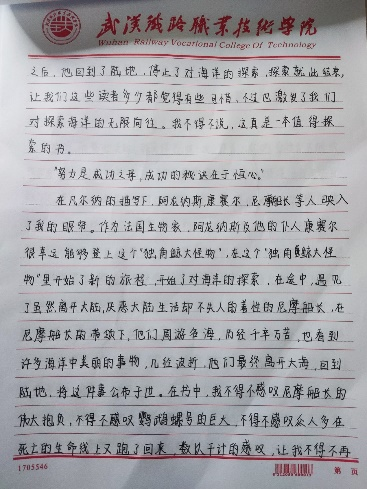 武汉铁路职业技术学院
Wuhan Railway Vocational College Of Technology
之后，他回到了陆地，停止了对海洋的探索，探索就此结束，
让我们这些读者多少都觉得有些可惜，不过也激发了我们
对探索海洋的无限向往。我不得不说，这真是一本值得探
索的书。
"努力是成功之母，成功的秘诀在于恒心。"
在凡尔纳的描写下，阿龙纳斯，康塞尔，尼摩船长等人映入
了我的眼帘。作为法国生物家，阿龙纳斯及他的仆人康塞尔
很幸运能够登上这个"独角鲸大怪物"，在这个"独角鲸大怪
物"里开始了新的旅程，开始了对海洋的探索，在途中，遇见
了虽然离开大陆，厌恶大陆生活却不失人的善性的尼摩船长，在
尼摩船长的带领下，他们周游各海，历经千辛万苦，也看到
许多海洋中美丽的事物，几经波折，他们最终离开大海，回到
陆地，将这件事公布于世。在书中，我不得不感叹尼摩船长的
伟大抱负，不得不感叹鹦鹉螺号的巨大，不得不感叹众人多在
死亡的生命线上又跑了回来，数以千计的感叹，让我不得不再
1705546
第 页